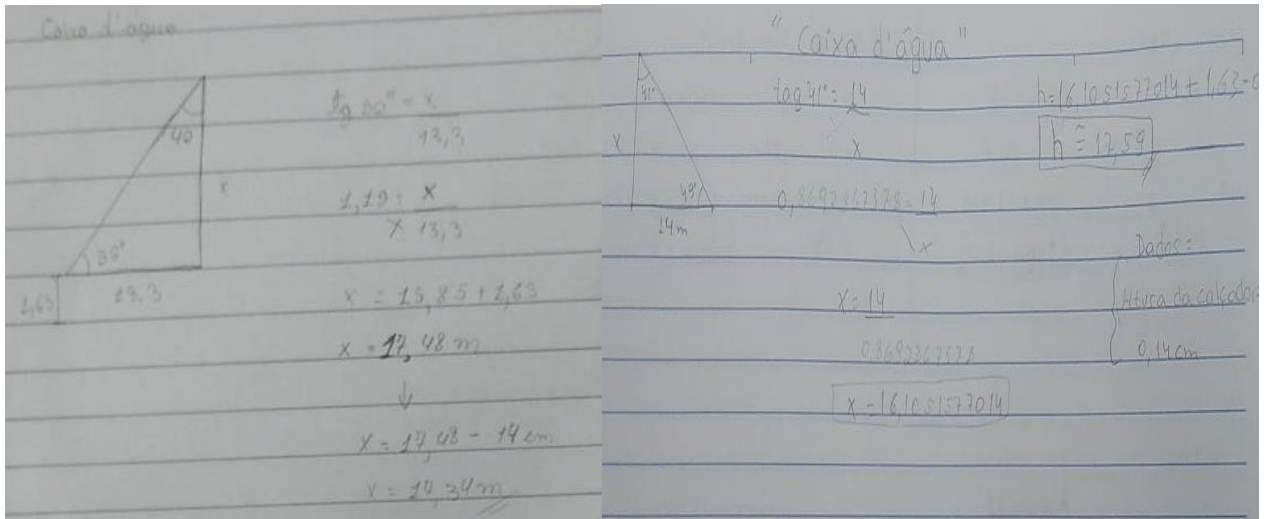 Caixa d'água
40
x
1,63
13,3
tg 50° = x
13,3
1,19 = x
13,3
x = 15,85 + 1,63
x = 17,48 m
↓
x = 17,48 - 14 cm
x = 17,34 m
"Caixa d'água"
41°
x
49°
14m
tag 41° = 14
x
0,8692867378 = 14
x
x = 14
0,8692867378
x = 16,1051577014
h = 16,1051577014 + 1,63 - 0
h ≅ 17,59
Dados =
Altura da calçada =
0,14 cm